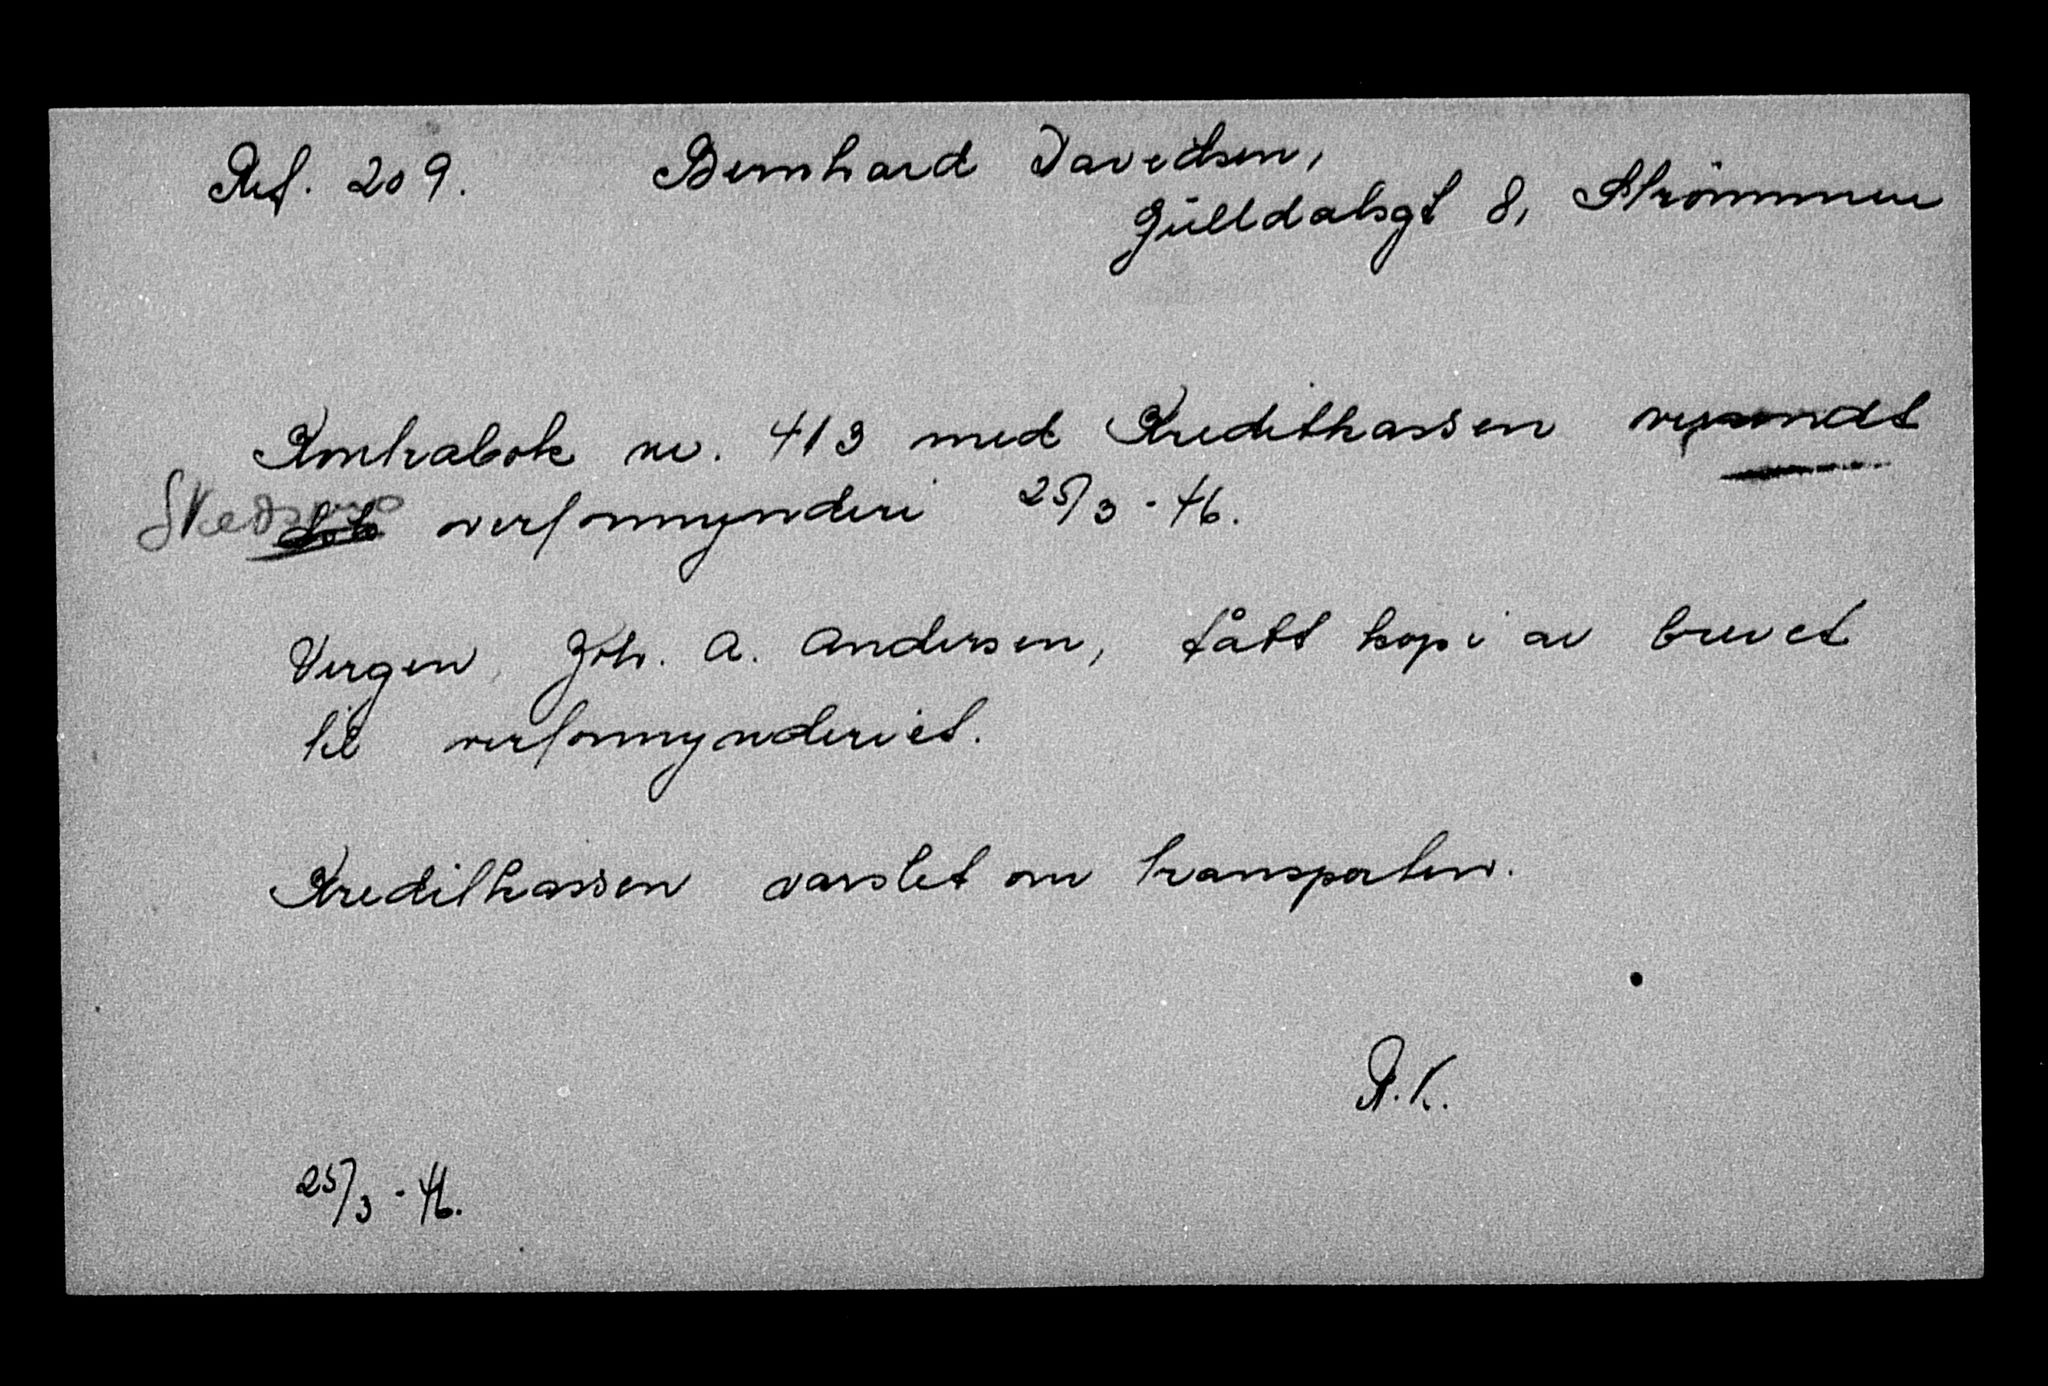 Ref. 209. Bernhard Davidsen,
Gülldalsgt 8, Strömmen
Kontrabok nr. 413 med Kreditkassen oversendt
Skedsmo overformynderi 25/3 - 46.
Vergen, Joh. A. Andersen, fått kopi av brevet
til overformynderiet.
Kreditkassen varslet om transporten.
R.K.
25/3 - 46.